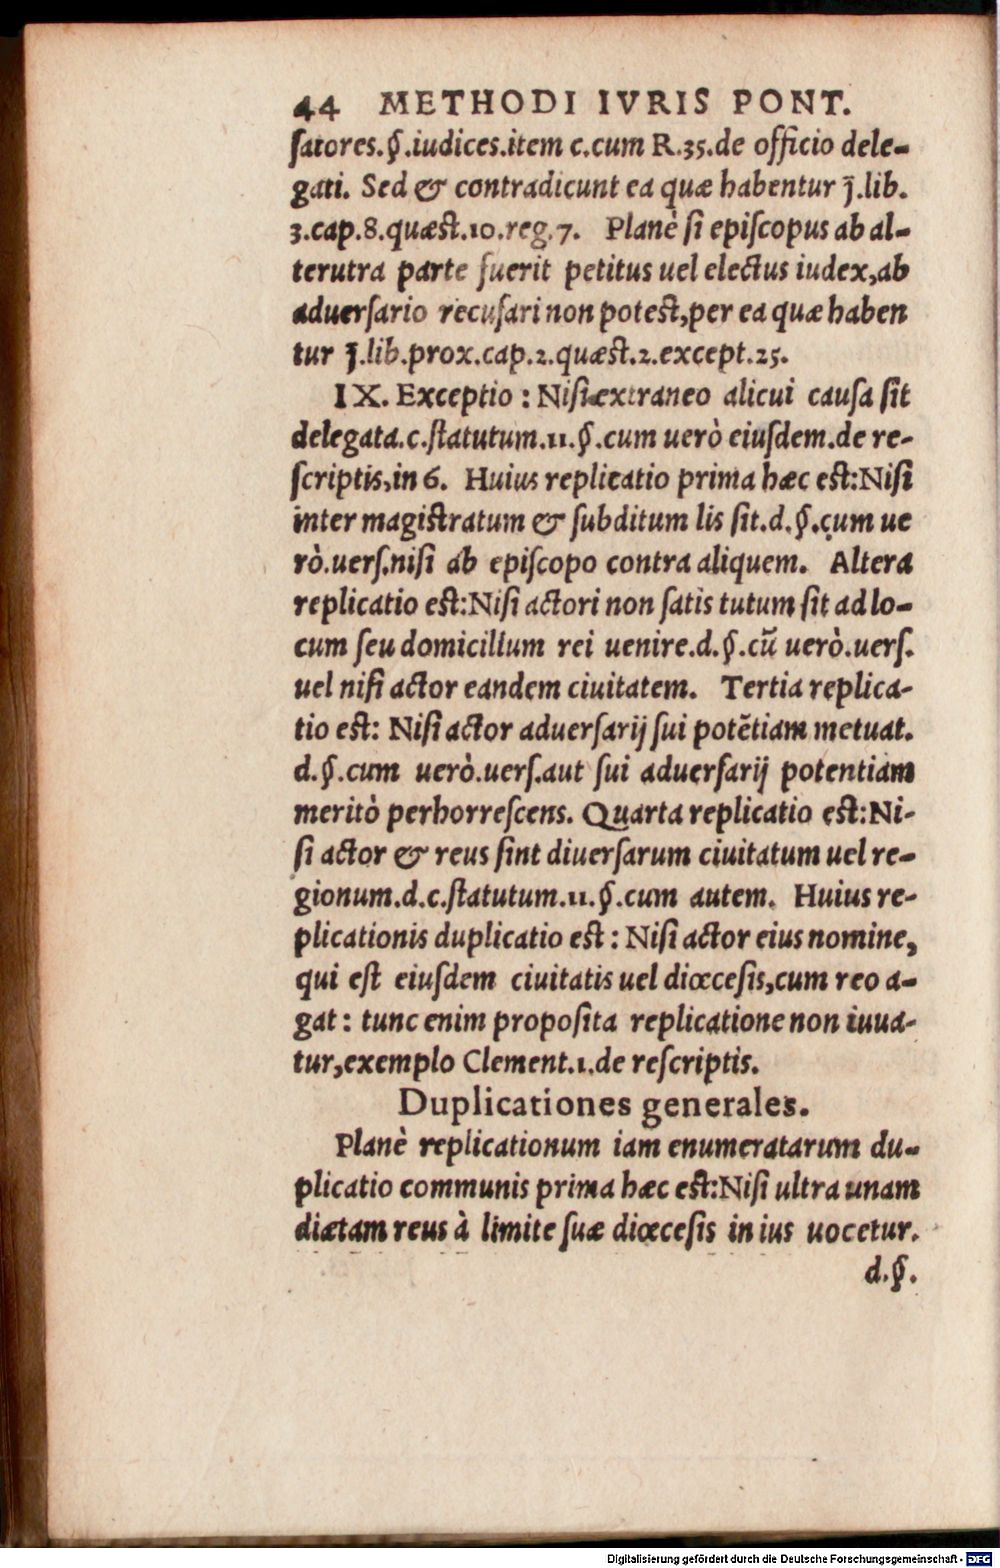 44 METHODI IVRIS PONT.
ſatores.§.iudices.item c.cum R.35.de officio dele-
gati. Sed & contradicunt ea quæ habentur j̄.lib.
3.cap.8.quæst.10.reg.7. Planè ſi epiſcopus ab al-
terutra parte fuerit petitus uel electus iudex,ab
aduerſario recuſari non potest,per ea quæ haben
tur j̄.lib.prox.cap.2.quæst.2.except.25.
IX. Exceptio : Niſi extraneo alicui cauſa ſit
delegata.c.ſtatutum.11.§.cum uerò eiuſdem.de re-
ſcriptis,in 6. Huius replicatio prima hæc est:Niſi
inter magistratum & ſubditum lis ſit.d.§.cum ue
rò.uerſ.niſi ab epiſcopo contra aliquem. Altera
replicatio est:Niſi actori non ſatis tutum ſit ad lo-
cum ſeu domicilium rei uenire.d.§.cū uerò.uerſ.
uel niſi actor eandem ciuitatem. Tertia replica-
tio est: Niſi actor aduerſarij ſui potẽtiam metuat.
d.§.cum uerò.uerſ.aut ſui aduerſarij potentiam
meritò perhorreſcens. Quarta replicatio est:Ni-
ſi actor & reus ſint diuerſarum ciuitatum uel re-
gionum.d.c.ſtatutum.11.§.cum autem. Huius re-
plicationis duplicatio est : Niſi actor eius nomine,
qui eſt eiuſdem ciuitatis uel diœceſis,cum reo a-
gat : tunc enim propoſita replicatione non iuua-
tur,exemplo Clement.1.de reſcriptis.
Duplicationes generales.
Planè replicationum iam enumeratarum du-
plicatio communis prima hæc est:Niſi ultra unam
diætam reus à limite ſuæ diœceſis in ius uocetur.
d.§.
Digitalisierung gefördert durch die Deutsche Forschungsgemeinschaft - DFG